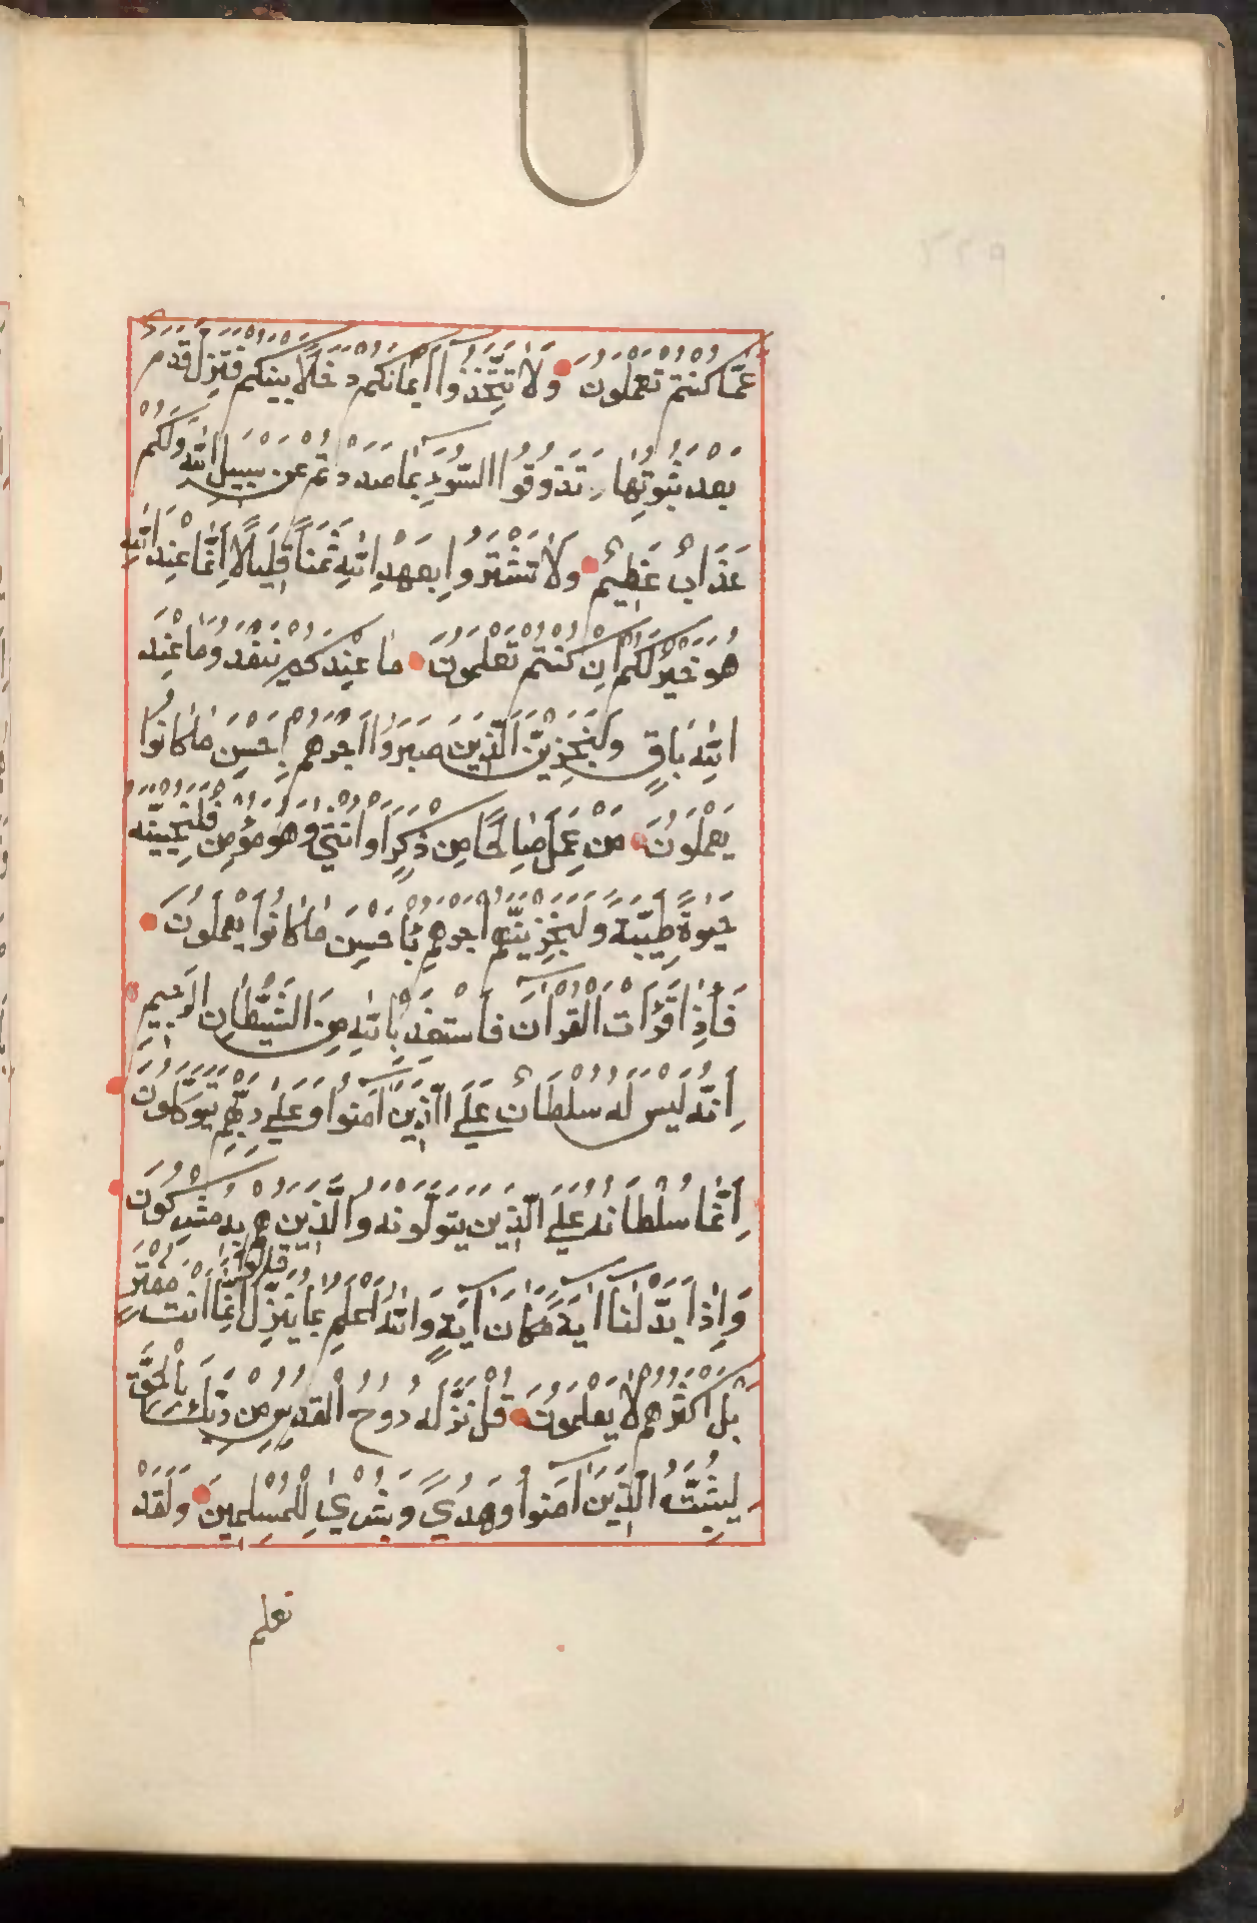 عَمَّا كُنْتُمْ تَعْمَلُونَ وَلَا تَتَّخِذُوا أَيْمَانَكُمْ دَخَلًا بَيْنَكُمْ فَتَزِلَّ قَدَمٌ
بَعْدَ ثُبُوتِهَا وَتَذُوقُوا السُّوءَ بِمَا صَدَدْتُمْ عَنْ سَبِيلِ اللّٰهِ وَلَكُمْ
عَذَابٌ عَظِيمٌ وَلَا تَشْتَرُوا بِعَهْدِ اللّٰهِ ثَمَنًا قَلِيلًا إِنَّمَا عِنْدَ اللّٰهِ
هُوَ خَيْرٌ لَكُمْ إِنْ كُنْتُمْ تَعْلَمُونَ مَا عِنْدَكُمْ يَنْفَدُ وَمَا عِنْدَ
اللّٰهِ بَاقٍ وَلَنَجْزِيَنَّ الَّذِينَ صَبَرُوا أَجْرَهُمْ بِأَحْسَنِ مَا كَانُوا
يَعْمَلُونَ مَنْ عَمِلَ صَالِحًا مِنْ ذَكَرٍ أَوْ أُنْثَى وَهُوَ مُؤْمِنٌ فَلَنُحْيِيَنَّهُ
حَيٰوةً طَيِّبَةً وَلَنَجْزِيَنَّهُمْ أَجْرَهُمْ بِأَحْسَنِ مَا كَانُوا يَعْمَلُونَ
فَإِذَا قَرَأْتَ الْقُرْآنَ فَاسْتَعِذْ بِاللّٰهِ مِنَ الشَّيْطَانِ الرَّجِيمِ
إِنَّهُ لَيْسَ لَهُ سُلْطَانٌ عَلَى الَّذِينَ آمَنُوا وَعَلَى رَبِّهِمْ يَتَوَكَّلُونَ
إِنَّمَا سُلْطَانُهُ عَلَى الَّذِينَ يَتَوَلَّوْنَهُ وَالَّذِينَ هُمْ بِهِ مُشْرِكُونَ
وَإِذَا بَدَّلْنَا آيَةً مَكَانَ آيَةٍ وَاللّٰهُ أَعْلَمُ بِمَا يُنَزِّلُ قَالُوا إِنَّمَا أَنْتَ مُفْتَرٍ
بَلْ أَكْثَرُهُمْ لَا يَعْلَمُونَ قُلْ نَزَّلَهُ رُوحُ الْقُدُسِ مِنْ رَبِّكَ بِالْحَقِّ
لِيُثَبِّتَ الَّذِينَ آمَنُوا وَهُدًى وَبُشْرَى لِلْمُسْلِمِينَ وَلَقَدْ
نعلم